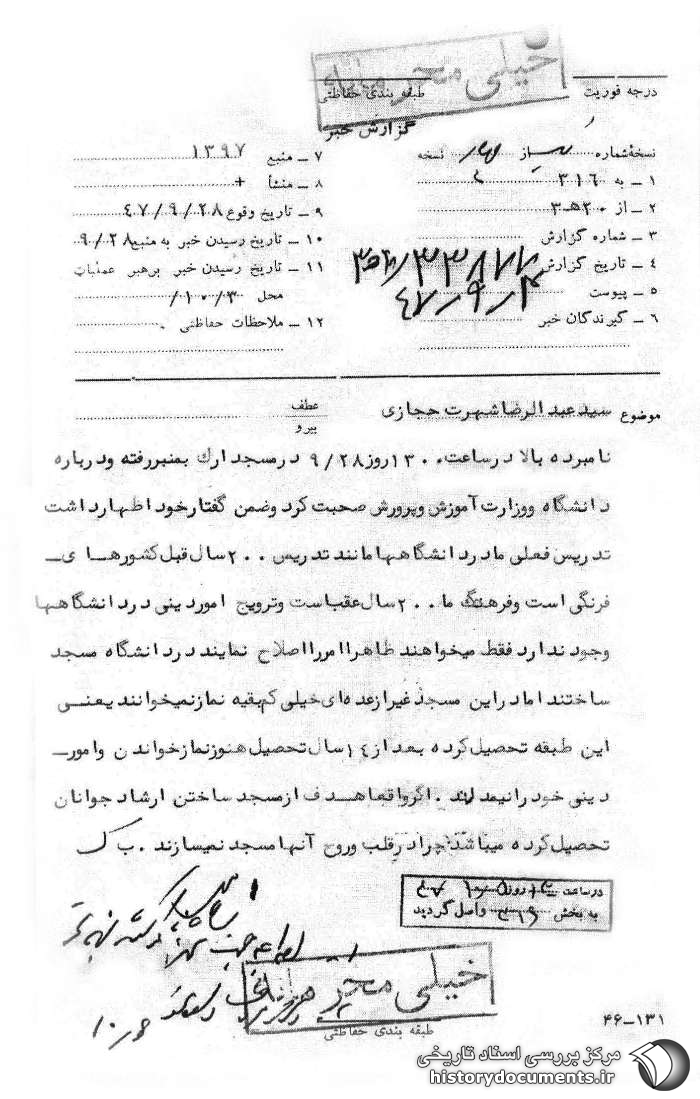 خیلی محرمانه
درجه فوریت
طبقه بندی حفاظتی
گزارش خبر
نسخهٔ شماره از چهار نسخه
۱ ـ به ۳۱۶
۲ ـ از ۲۰هـ۳
۳ ـ شماره گزارش
۴ ـ تاریخ گزارش
۵ ـ پیوست
۶ ـ گیرندگان خبر
۷ ـ منبع ۱۳۹۷
۸ ـ منشأ +
۹ ـ تاریخ وقوع ۴۷/۹/۲۸
۱۰ ـ تاریخ رسیدن خبر به منبع ۹/۲۸
۱۱ ـ تاریخ رسیدن خبر برهبر عملیات
محل ۱۰/۳/
۱۲ ـ ملاحظات حفاظتی
موضوع سیدعبدالرضا شهرت حجازی
عطف
پیرو
نامبرده بالا درساعت ۱۳۰۰ روز ۹/۲۸ درمسجد ارك بمنبررفته ودرباره
دانشگاه ووزارت آموزش وپرورش صحبت کرد وضمن گفتارخود اظهارداشت
تدریس فعلی مادردانشگاهها مانند تدریس ۲۰۰ سال قبل کشورهای
فرنگی است وفرهنگ ما ۲۰۰ سال عقب است وترویج اموردینی دردانشگاهها
وجود ندارد فقط میخواهند ظاهرا امورااصلاح نمایند دردانشگاه مسجد
ساختند امادراین مسجد غیرازعده‌ای خیلی کم بقیه نمازنمیخوانند یعنی
این طبقه تحصیل کرده بعد از ۱۴ سال تحصیل هنوزنمازخواندن وامور
دینی خودرانمیدانند . اگرواقعا هدف ازمسجد ساختن ارشاد جوانان
تحصیل کرده میباشد چرادرقلب وروح آنها مسجد نمیسازند . ب ك
درساعت روز
به بخش ۳۱۶ واصل گردید
خیلی محرمانه
طبقه بندی حفاظتی
۴۶-۱۳۱
مرکز بررسی اسناد تاریخی
historydocuments.ir